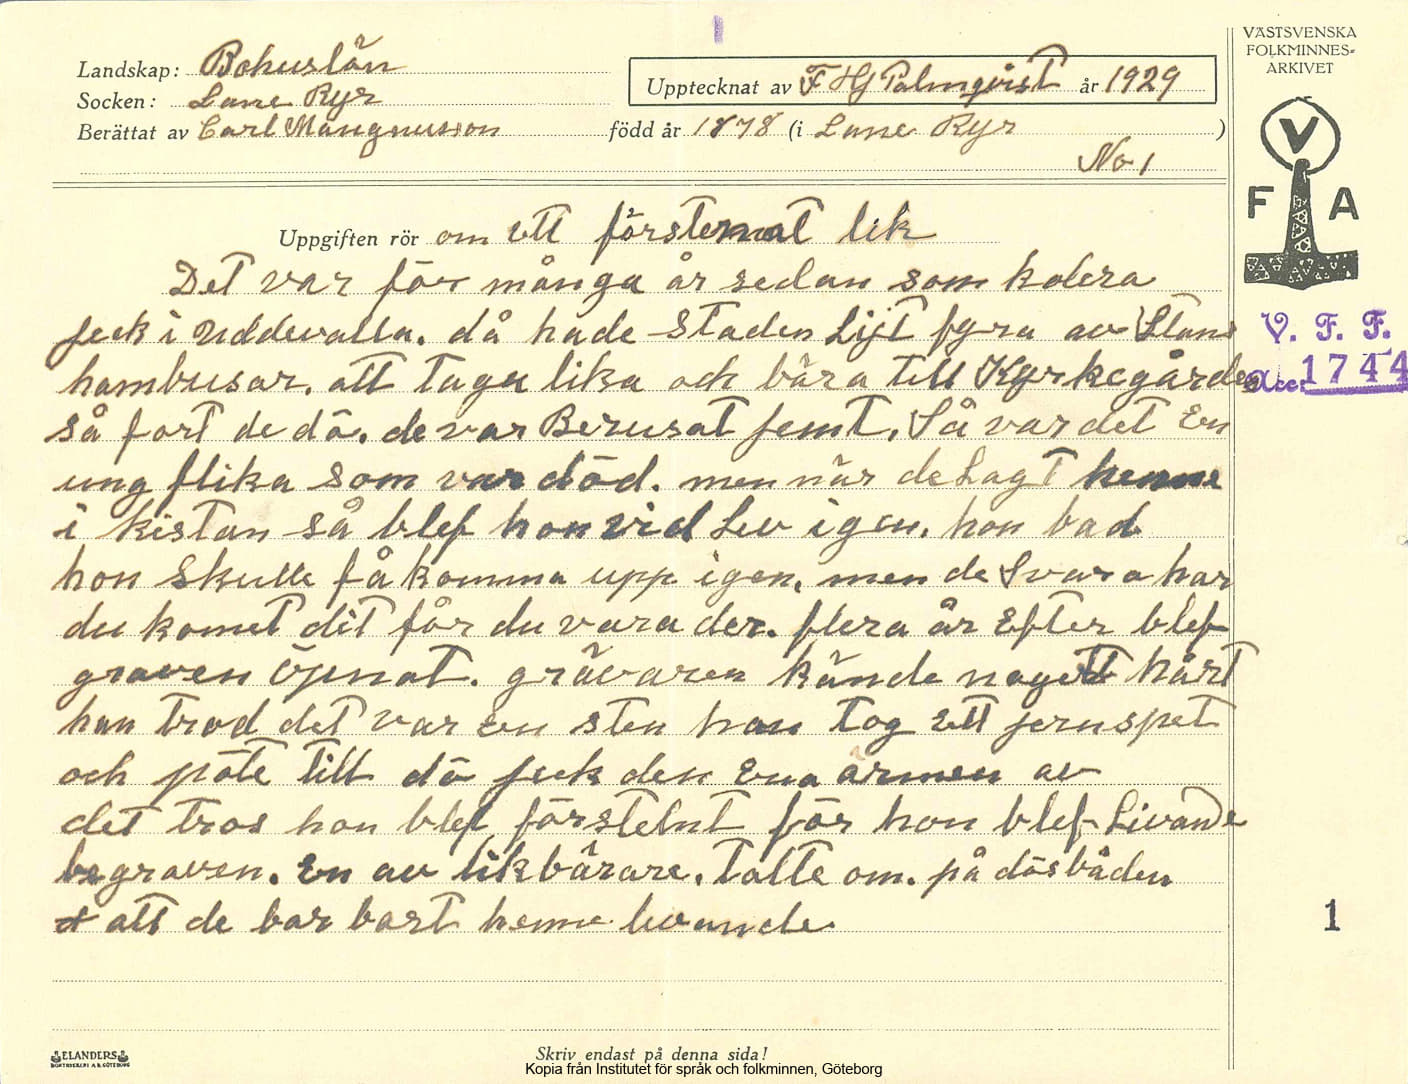 VÄSTSVENSKA
FOLKMINNES-
ARKIVET
Landskap: Bohuslän
Upptecknat av F Hj Palmqvist år 1929
Socken: Lane Ryr
Berättat av Carl Mangnusson född år 1878 (i Lane Ryr )
No 1
V
F A
Uppgiften rör om ett förstenat lik
Det var för många år sedan som kolera
feck i Uddevalla. då hade Staden Lijt fyra av Stans
hambusar. att taga lika och bära till Kyrkegården
så fort de dö. de var Berusat jemt. Så var det En
ung flika som var död. men när de Lagt henne
i kistan så blef hon vid Lev igen. hon bad
hon Skulle få komma upp igen, men de Svara har
du komet dit får du vara der. flera år Efter blef
graven öjenat. grävaren kände nogett hårt
han trod det var en sten han tog Ett jernspet
och pöte till då feck den Ena armen av
det tros hon blef förstelnt för hon blef Livande
begraven. En av likbärare. talte om. på dösbäden
att de bar bort henne levande
V. F. F.
Acc. 1744
1
ELANDERS
BOKTRYCKERI A.B. GÖTEBORG
Skriv endast på denna sida!
Kopia från Institutet för språk och folkminnen, Göteborg